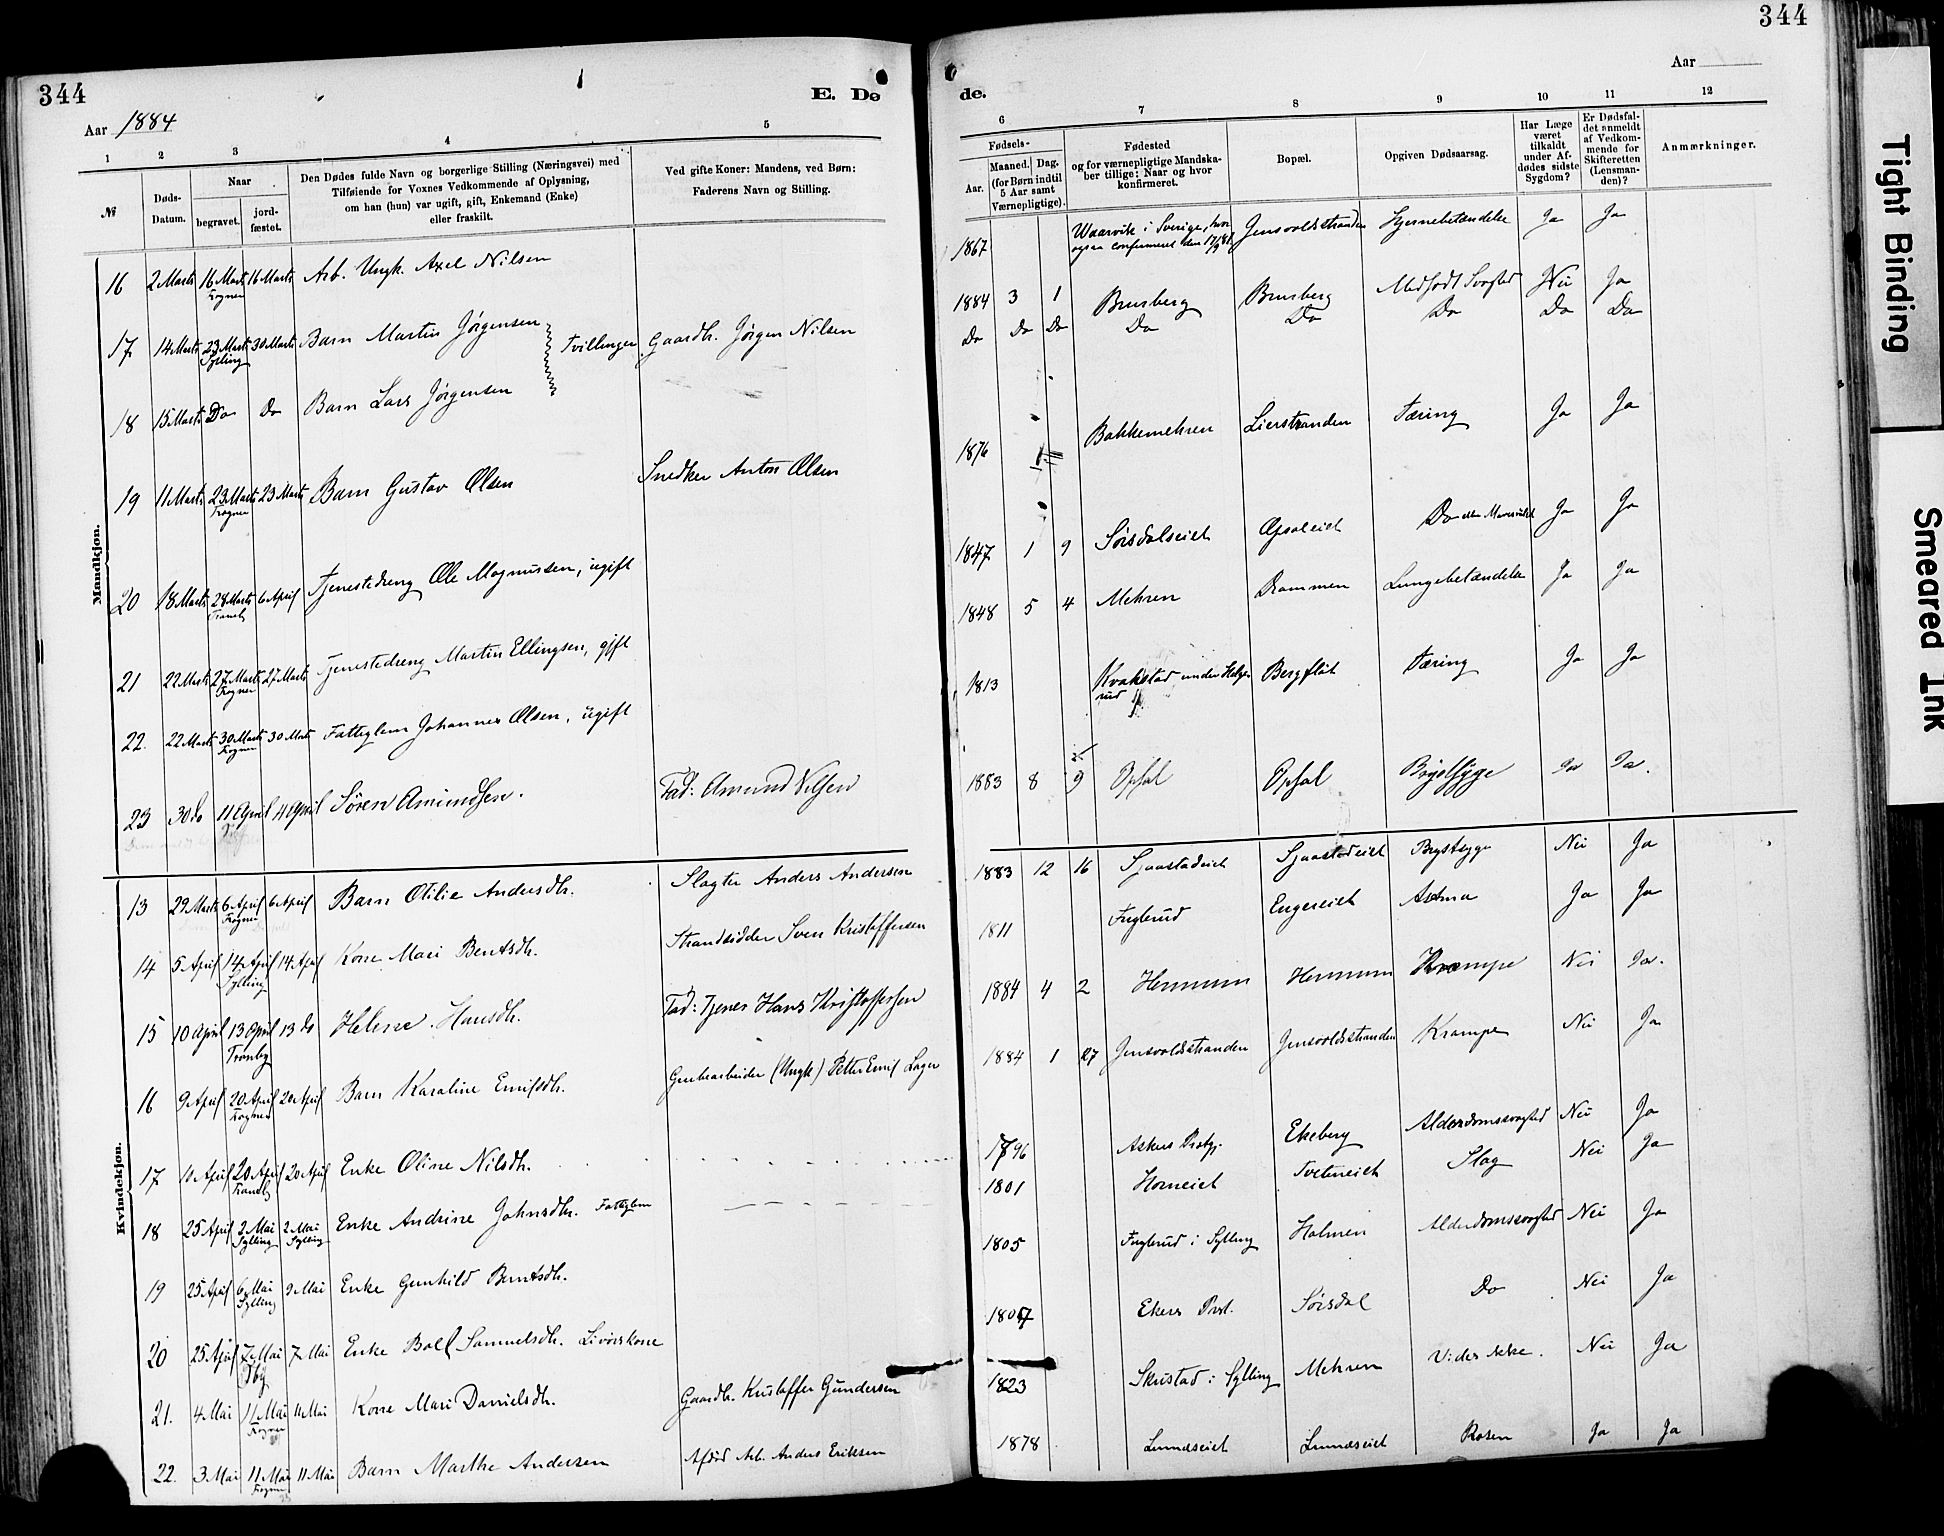 344
E. Dø
Aar 1884
1 2 3 4 5
№
Døds-
Datum.
Naar
begravet.
jord-
fæstet.
Den Dødes fulde Navn og borgerlige Stilling (Næringsvei) med
Tilføiende for Voxnes Vedkommende af Oplysning,
om han (hun) var ugift, gift, Enkemand (Enke)
eller fraskilt.
Ved gifte Koner: Mandens, ved Børn:
Faderens Navn og Stilling.
Mandkjøn.
16 2 Marts 16 Marts 16 Marts Arb. Ungk. Axel Nilsen
Frogner
17 14 Marts 23 Marts 30 Marts Barn Martin Jörgensen Tvillinger Gaardb. Jörgen Nilsen
Sylling
18 15 Marts Do Do Barn Lars Jörgensen
19 11 Marts 23 Marts 23 Marts Barn Gustav Olsen Snedker Anton Olsen
Frogner
20 18 Marts 28 Marts 6 April Tjenestedreng Ole Magnussen, ugift
Tranby
21 22 Marts 27 Marts 27 Marts Tjenestedreng Martin Ellingsen, gift
Frogner
22. 22 Marts 30 Marts 30 Marts Fattiglem Johannes Olsen, ugift
Frogner
23 30 do 11 April 11 April Sören Amundsen. Fad: Amund Nilsen
Kvindekjøn.
13 29 Marts 6 April 6 April Barn Otilie Andersdtr. Slagter Anders Andersen
Frogner
14 5 April 14 April 14 April Kone Mari Bentsdtr. Strandsidder Sven Kristoffersen
Sylling
15 10 April 13 April 13 do Helene Hansdtr. Fad: Tjener Hans Kristoffersen
Tranby
16 9 April 20 April 20 April Barn Karoline Emilsdtr. Grubearbeider (Ungk) Petter Emil Lager
Frogner
17 11 April 20 April 20 April Enke Oline Nilsdtr.
Tranby
18 25 April 2 Mai 2 Mai Enke Andrine Johnsdtr. Fattiglem
Sylling Sylling
19 25 April 6 Mai 9 Mai Enke Gunhild Berntsdtr.
Sylling
20 25 April 7 Mai 7 Mai Enke Boel Samuelsdtr. Livörskone
21. 4 Mai 11 Mai 11 Mai Kone Mari Danielsdtr. Gaardb. Kristoffer Gundersen
Frogner
22. 3 Mai 11 Mai 11 Mai Barn Marthe Andersen Afdöd Arb. Anders Eriksen
Frogner
344
de.
Aar
6 7 8 9 10 11 12
Fødsels-
Aar.
Maaned. Dag.
(for Børn indtil
5 Aar samt
Værnepligtige).
Fødested
og for værnepligtige Mandska-
ber tillige: Naar og hvor
konfirmeret.
Bopæl.
Opgiven Dødsaarsag.
Har Læge
været
tilkaldt
under Af-
dødes sidste
Sygdom?
Er Dødsfal-
det anmeldt
af Vedkom-
mende for
Skifteretten
(Lensman-
den)?
Anmærkninger.
1867 Waarvik i Sverige, hvor Gensvoldstranden Hjernebetændelse Ja Ja
ogsaa confirmeret den
1884 3 1 Brusberg Brusberg Medfödt Svaghed Nei Ja
Do Do Do Do Do Do Do Do
1876 Bakkemehren Lierstranden Tæring Ja Ja
1847 1 9 Sörsdalseiet Opsaleiet Do Ja Ja
1848 5 4 Mehren Drammen Lungebetændelse Ja Ja
1813 Kvakstad under Helge Bergflöt Tæring Ja Ja
rud
1883 8 9 Opsal Opsal Brystsyge Ja Ja.
1883 12 16 Sjaastadeiet Sjaastadeiet Brystsyge Nei Ja
1811 Fuglerud Engereiet Astma Ja Ja
1884 4 2 Hennum Hennum Krampe Nei Ja.
1884 1 27 Gensvoldstranden Gensvoldstranden Krampe Nei Ja
1796 Askers Prstgj. Ekeberg Alderdomssvaghed Nei Ja
1801 Horneiet Tveteneiet Slag Nei Ja
1805 Fuglerud i Sylling Holmen Alderdomssvaghed Nei Ja
1807 Ekers Prst. Sörsdal Do Nei Ja
1823 Skustad i Sylling Mehren Vides ikke. Nei Ja
1878 Lundseiet Lundseiet Rosen Ja Ja
Tight Binding
Smeared Ink